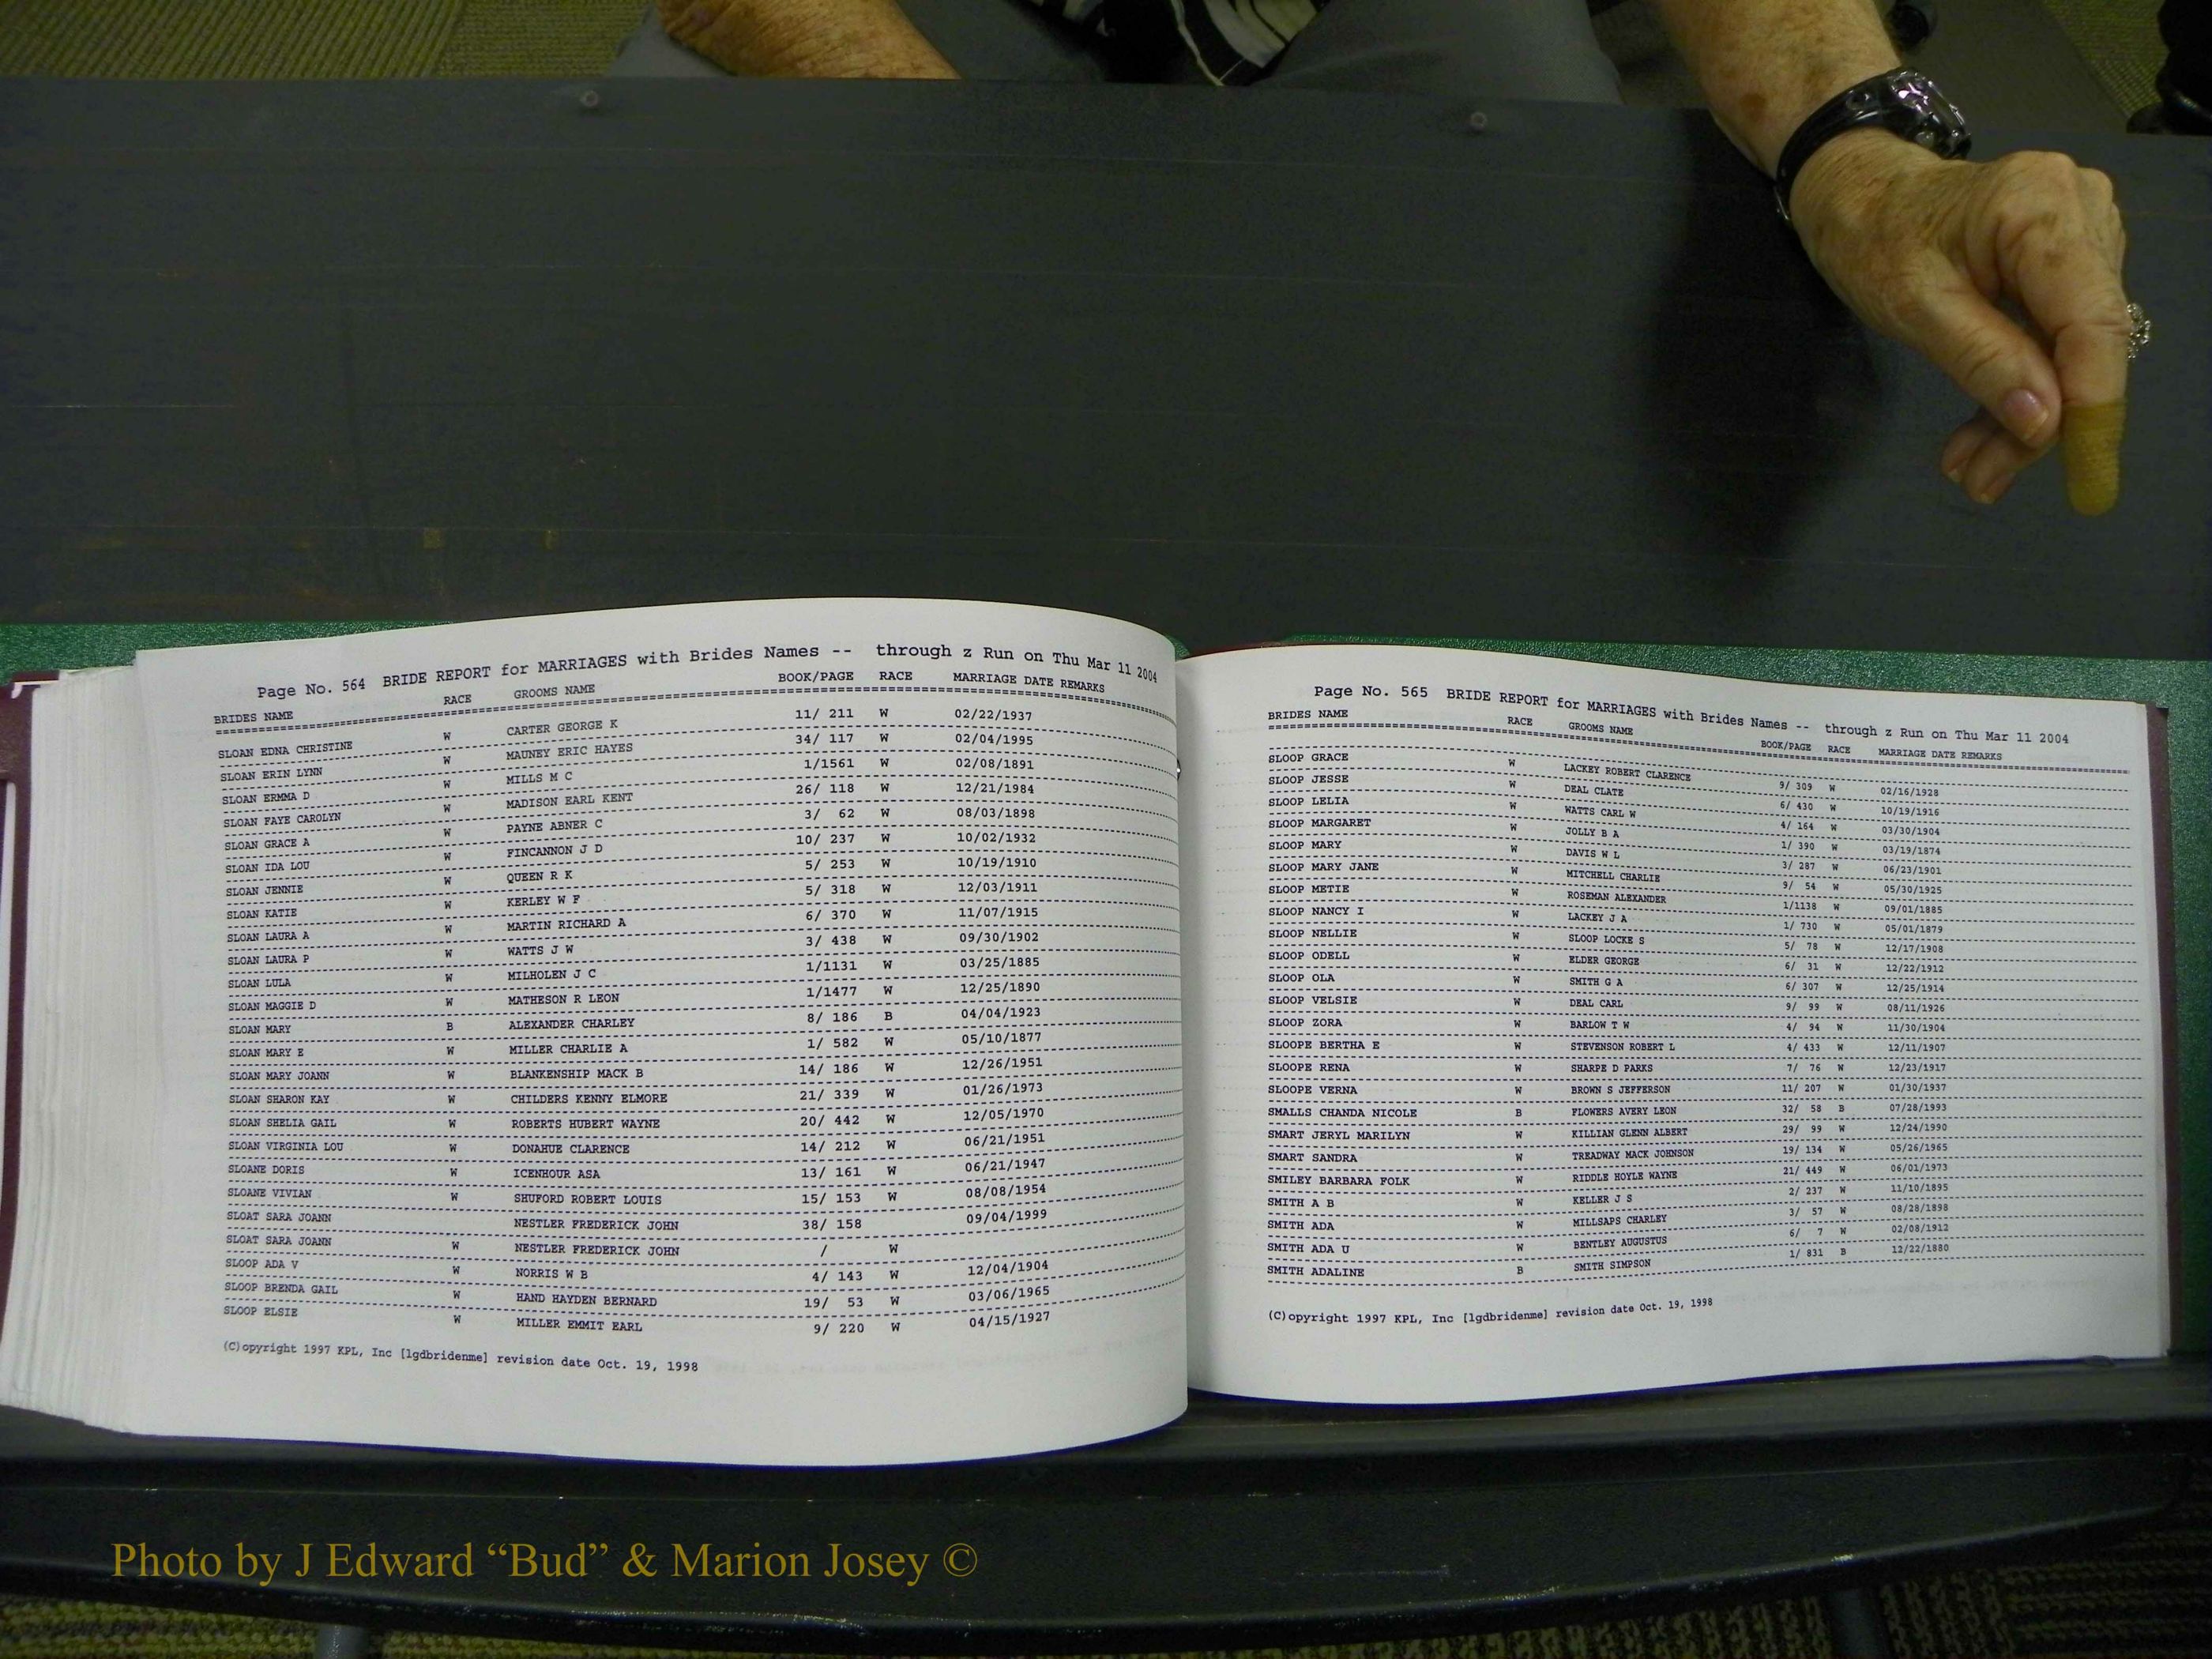 Page No. 564 BRIDE REPORT for MARRIAGES with Brides Names -- through z Run on Thu Mar 11 2004
BRIDES NAME RACE GROOMS NAME BOOK/PAGE RACE MARRIAGE DATE REMARKS
SLOAN EDNA CHRISTINE W CARTER GEORGE K 11/ 211 W 02/22/1937
SLOAN ERIN LYNN W MAUNEY ERIC HAYES 34/ 117 W 02/04/1995
SLOAN ERMMA D W MILLS M C 1/1561 W 02/08/1891
SLOAN FAYE CAROLYN W MADISON EARL KENT 26/ 118 W 12/21/1984
SLOAN GRACE A W PAYNE ABNER C 3/ 62 W 08/03/1898
SLOAN IDA LOU W FINCANNON J D 10/ 237 W 10/02/1932
SLOAN JENNIE W QUEEN R K 5/ 253 W 10/19/1910
SLOAN KATIE W KERLEY W F 5/ 318 W 12/03/1911
SLOAN LAURA A W MARTIN RICHARD A 6/ 370 W 11/07/1915
SLOAN LAURA P W WATTS J W 3/ 438 W 09/30/1902
SLOAN LULA W MILHOLEN J C 1/1131 W 03/25/1885
SLOAN MAGGIE D W MATHESON R LEON 1/1477 W 12/25/1890
SLOAN MARY B ALEXANDER CHARLEY 8/ 186 B 04/04/1923
SLOAN MARY E W MILLER CHARLIE A 1/ 582 W 05/10/1877
SLOAN MARY JOANN W BLANKENSHIP MACK B 14/ 186 W 12/26/1951
SLOAN SHARON KAY W CHILDERS KENNY ELMORE 21/ 339 W 01/26/1973
SLOAN SHELIA GAIL W ROBERTS HUBERT WAYNE 20/ 442 W 12/05/1970
SLOAN VIRGINIA LOU W DONAHUE CLARENCE 14/ 212 W 06/21/1951
SLOANE DORIS W ICENHOUR ASA 13/ 161 W 06/21/1947
SLOANE VIVIAN W SHUFORD ROBERT LOUIS 15/ 153 W 08/08/1954
SLOAT SARA JOANN NESTLER FREDERICK JOHN 38/ 158 09/04/1999
SLOAT SARA JOANN W NESTLER FREDERICK JOHN / W
SLOOP ADA V W NORRIS W B 4/ 143 W 12/04/1904
SLOOP BRENDA GAIL W HAND HAYDEN BERNARD 19/ 53 W 03/06/1965
SLOOP ELSIE W MILLER EMMIT EARL 9/ 220 W 04/15/1927
(C)opyright 1997 KPL, Inc [lgdbridenme] revision date Oct. 19, 1998
Page No. 565 BRIDE REPORT for MARRIAGES with Brides Names -- through z Run on Thu Mar 11 2004
BRIDES NAME RACE GROOMS NAME BOOK/PAGE RACE MARRIAGE DATE REMARKS
SLOOP GRACE W LACKEY ROBERT CLARENCE 9/ 309 W 02/16/1928
SLOOP JESSE W DEAL CLATE 6/ 430 W 10/19/1916
SLOOP LELIA W WATTS CARL W 4/ 164 W 03/30/1904
SLOOP MARGARET W JOLLY B A 1/ 390 W 03/19/1874
SLOOP MARY W DAVIS W L 3/ 287 W 06/23/1901
SLOOP MARY JANE W MITCHELL CHARLIE 9/ 54 W 05/30/1925
SLOOP METIE W ROSEMAN ALEXANDER 1/1138 W 09/01/1885
SLOOP NANCY I W LACKEY J A 1/ 730 W 05/01/1879
SLOOP NELLIE W SLOOP LOCKE S 5/ 78 W 12/17/1908
SLOOP ODELL W ELDER GEORGE 6/ 31 W 12/22/1912
SLOOP OLA W SMITH G A 6/ 307 W 12/25/1914
SLOOP VELSIE W DEAL CARL 9/ 99 W 08/11/1926
SLOOP ZORA W BARLOW T W 4/ 94 W 11/30/1904
SLOOPE BERTHA E W STEVENSON ROBERT L 4/ 433 W 12/11/1907
SLOOPE RENA W SHARPE D PARKS 7/ 76 W 12/23/1917
SLOOPE VERNA W BROWN S JEFFERSON 11/ 207 W 01/30/1937
SMALLS CHANDA NICOLE B FLOWERS AVERY LEON 32/ 58 B 07/28/1993
SMART JERYL MARILYN W KILLIAN GLENN ALBERT 29/ 99 W 12/24/1990
SMART SANDRA W TREADWAY MACK JOHNSON 19/ 134 W 05/26/1965
SMILEY BARBARA FOLK W RIDDLE HOYLE WAYNE 21/ 449 W 06/01/1973
SMITH A B W KELLER J S 2/ 237 W 11/10/1895
SMITH ADA W MILLSAPS CHARLEY 3/ 57 W 08/28/1898
SMITH ADA U W BENTLEY AUGUSTUS 6/ 7 W 02/08/1912
SMITH ADALINE B SMITH SIMPSON 1/ 831 B 12/22/1880
(C)opyright 1997 KPL, Inc [lgdbridenme] revision date Oct. 19, 1998
Photo by J Edward “Bud” & Marion Josey ©